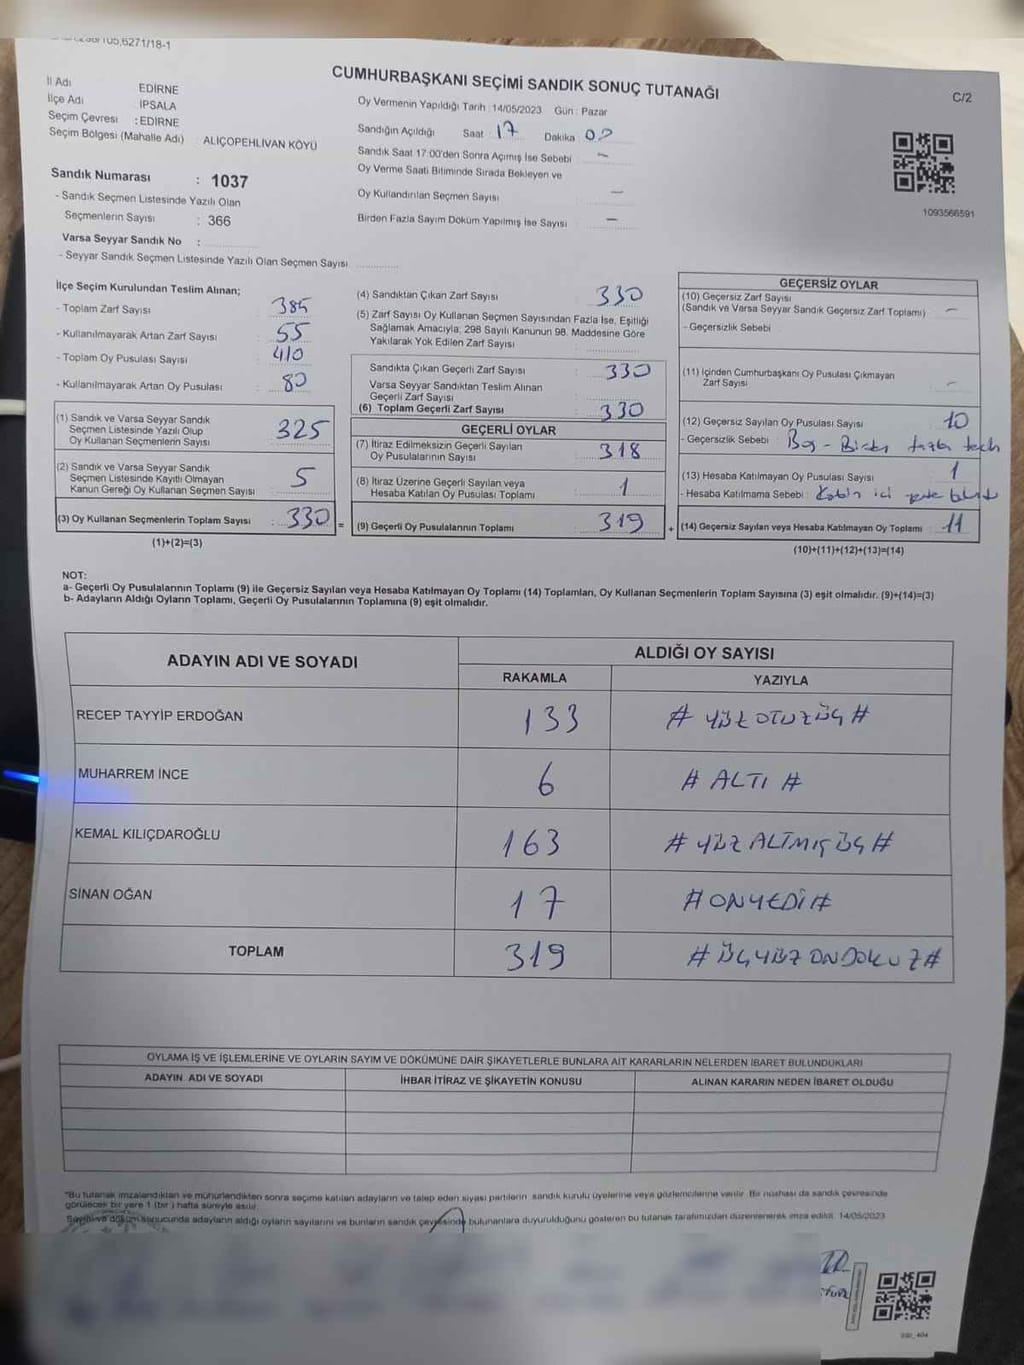 CUMHURBAŞKANI SEÇİMİ SANDIK SONUÇ TUTANAĞI
C/2
İl Adı EDİRNE
İlçe Adı İPSALA
Seçim Çevresi : EDİRNE
Seçim Bölgesi (Mahalle Adı) : ALİÇOPEHLİVAN KÖYÜ
Sandık Numarası : 1037
- Sandık Seçmen Listesinde Yazılı Olan
Seçmenlerin Sayısı : 366
Varsa Seyyar Sandık No :
- Seyyar Sandık Seçmen Listesinde Yazılı Olan Seçmen Sayısı
Oy Vermenin Yapıldığı Tarih : 14/05/2023 Gün : Pazar
Sandığın Açıldığı Saat : 17 Dakika : 00
Sandık Saat 17:00'den Sonra Açımış İse Sebebi : -
Oy Verme Saati Bitiminde Sırada Bekleyen ve
Oy Kullandırılan Seçmen Sayısı : -
Birden Fazla Sayım Döküm Yapılmış İse Sayısı : -
1093566591
İlçe Seçim Kurulundan Teslim Alınan;
- Toplam Zarf Sayısı : 385
- Kullanılmayarak Artan Zarf Sayısı : 55
- Toplam Oy Pusulası Sayısı : 410
- Kullanılmayarak Artan Oy Pusulası : 80
(1) Sandık ve Varsa Seyyar Sandık
Seçmen Listesinde Yazılı Olup
Oy Kullanan Seçmenlerin Sayısı : 325
(2) Sandık ve Varsa Seyyar Sandık
Seçmen Listesinde Kayıtlı Olmayan
Kanun Gereği Oy Kullanan Seçmen Sayısı : 5
(3) Oy Kullanan Seçmenlerin Toplam Sayısı : 330 =
(1)+(2)=(3)
(4) Sandıktan Çıkan Zarf Sayısı : 330
(5) Zarf Sayısı Oy Kullanan Seçmen Sayısından Fazla İse, Eşitliği
Sağlamak Amacıyla; 298 Sayılı Kanunun 98. Maddesine Göre
Yakılarak Yok Edilen Zarf Sayısı :
Sandıkta Çıkan Geçerli Zarf Sayısı : 330
Varsa Seyyar Sandıktan Teslim Alınan
Geçerli Zarf Sayısı :
(6) Toplam Geçerli Zarf Sayısı : 330
GEÇERLİ OYLAR
(7) İtiraz Edilmeksizin Geçerli Sayılan
Oy Pusulalarının Sayısı : 318
(8) İtiraz Üzerine Geçerli Sayılan veya
Hesaba Katılan Oy Pusulası Toplamı : 1
(9) Geçerli Oy Pusulalarının Toplamı : 319 +
GEÇERSİZ OYLAR
(10) Geçersiz Zarf Sayısı
(Sandık ve Varsa Seyyar Sandık Geçersiz Zarf Toplamı) : -
- Geçersizlik Sebebi :
(11) İçinden Cumhurbaşkanı Oy Pusulası Çıkmayan
Zarf Sayısı : -
(12) Geçersiz Sayılan Oy Pusulası Sayısı : 10
- Geçersizlik Sebebi : Boş - Birden fazla tercih
(13) Hesaba Katılmayan Oy Pusulası Sayısı : 1
- Hesaba Katılmama Sebebi : Kabin içi
(14) Geçersiz Sayılan veya Hesaba Katılmayan Oy Toplamı : 11
(10)+(11)+(12)+(13)=(14)
NOT:
a- Geçerli Oy Pusulalarının Toplamı (9) ile Geçersiz Sayılan veya Hesaba Katılmayan Oy Toplamı (14) Toplamları, Oy Kullanan Seçmenlerin Toplam Sayısına (3) eşit olmalıdır. (9)+(14)=(3)
b- Adayların Aldığı Oyların Toplamı, Geçerli Oy Pusulalarının Toplamına (9) eşit olmalıdır.
ADAYIN ADI VE SOYADI
ALDIĞI OY SAYISI
RAKAMLA YAZIYLA
RECEP TAYYİP ERDOĞAN 133 # YÜZ OTUZ ÜÇ #
MUHARREM İNCE 6 # ALTI #
KEMAL KILIÇDAROĞLU 163 # YÜZ ALTMIŞ ÜÇ #
SİNAN OĞAN 17 # ONYEDİ #
TOPLAM 319 # ÜÇYÜZ ONDOKUZ #
OYLAMA İŞ VE İŞLEMLERİNE VE OYLARIN SAYIM VE DÖKÜMÜNE DAİR ŞİKAYETLERLE BUNLARA AİT KARARLARIN NELERDEN İBARET BULUNDUKLARI
ADAYIN ADI VE SOYADI İHBAR İTİRAZ VE ŞİKAYETİN KONUSU ALINAN KARARIN NEDEN İBARET OLDUĞU
"Bu tutanak imzalandıktan ve mühürlendikten sonra seçime katılan adayların ve talep eden siyasi partilerin sandık kurulu üyelerine veya gözlemcilerine verilir. Bir nüshası da sandık çevresinde
görülecek bir yere 1 (bir) hafta süreyle asılır.
Sayım ve döküm sonucunda adayların aldığı oyların sayılarını ve bunların sandık çevresinde bulunanlara duyurulduğunu gösteren bu tutanak tarafımızdan düzenlenerek imza edildi. 14/05/2023